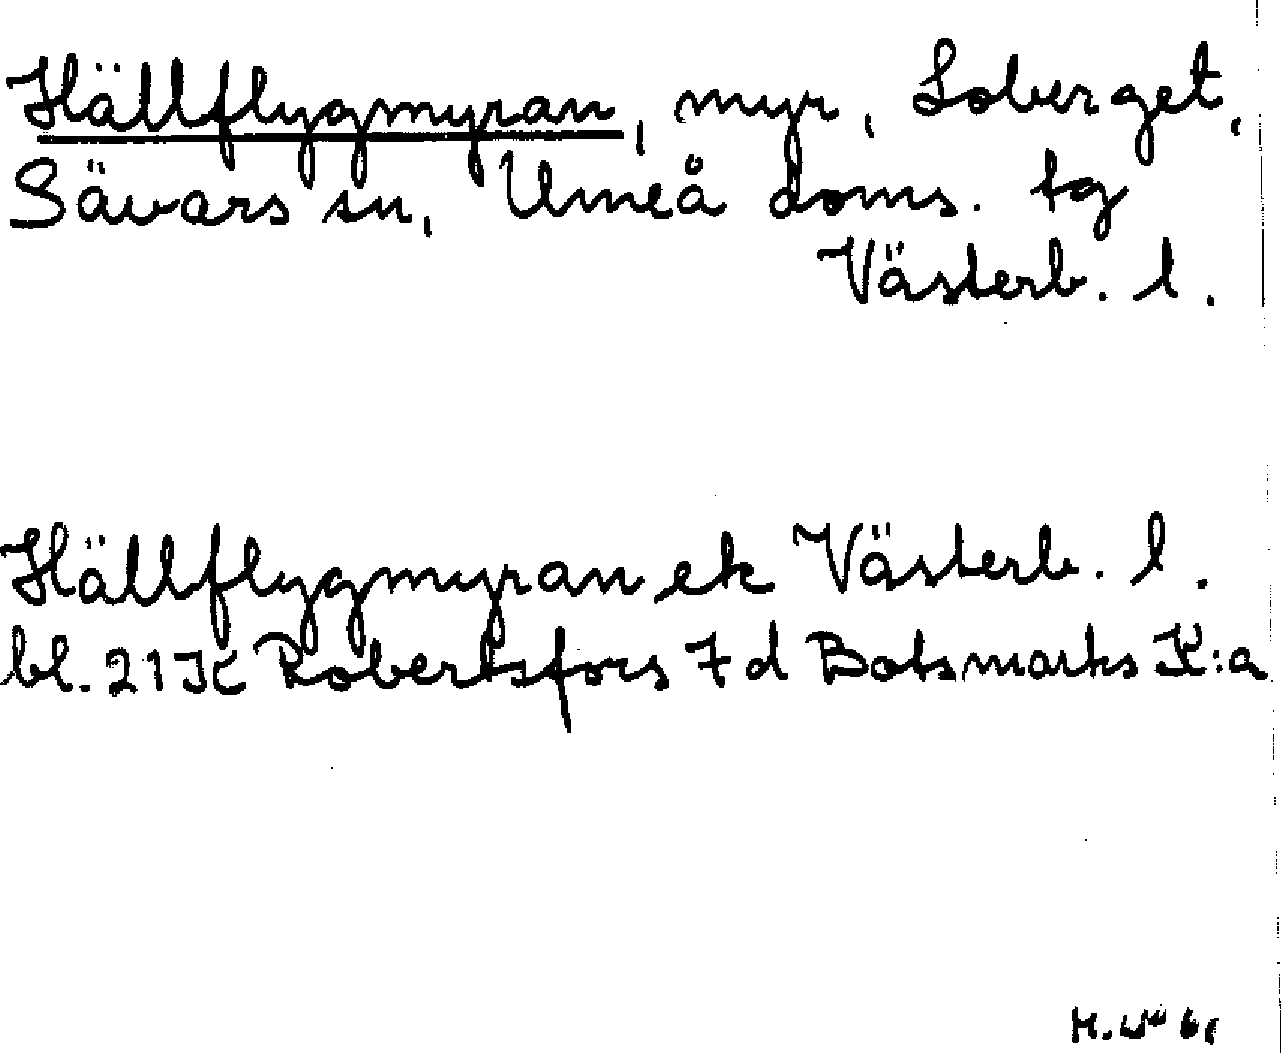 Hällflygmyran, myr, Loberget,
Sävars sn, Umeå doms. tg
Västerb. l.
Hällflygmyran, ek Västerb. l.
bl. 21K Robertsfors 7d Botsmarks K:a